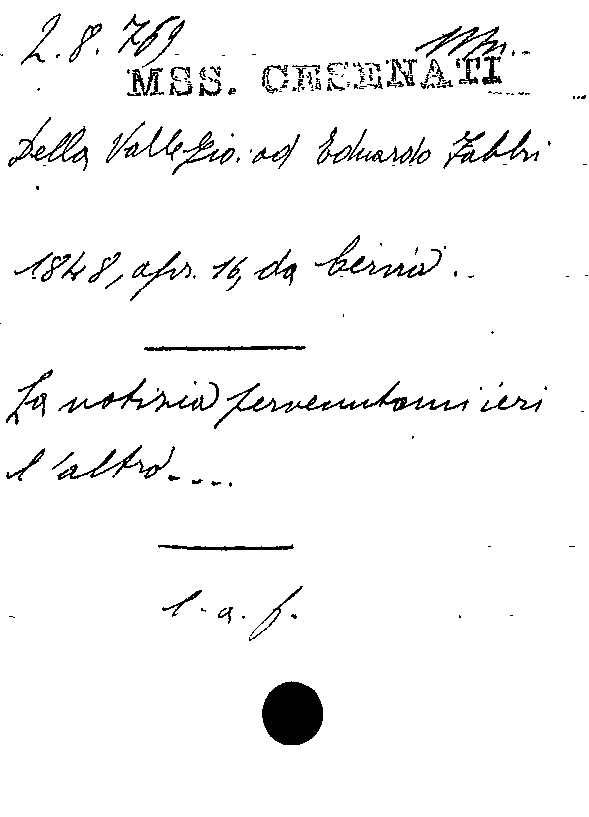 2. 8. 769
MSS. CESENATI
Della Valle Gio. ad Eduardo Fabbri
1848, apr. 16, da Cervia.
La notizia pervenutami ieri
l'altro....
l. a. f.